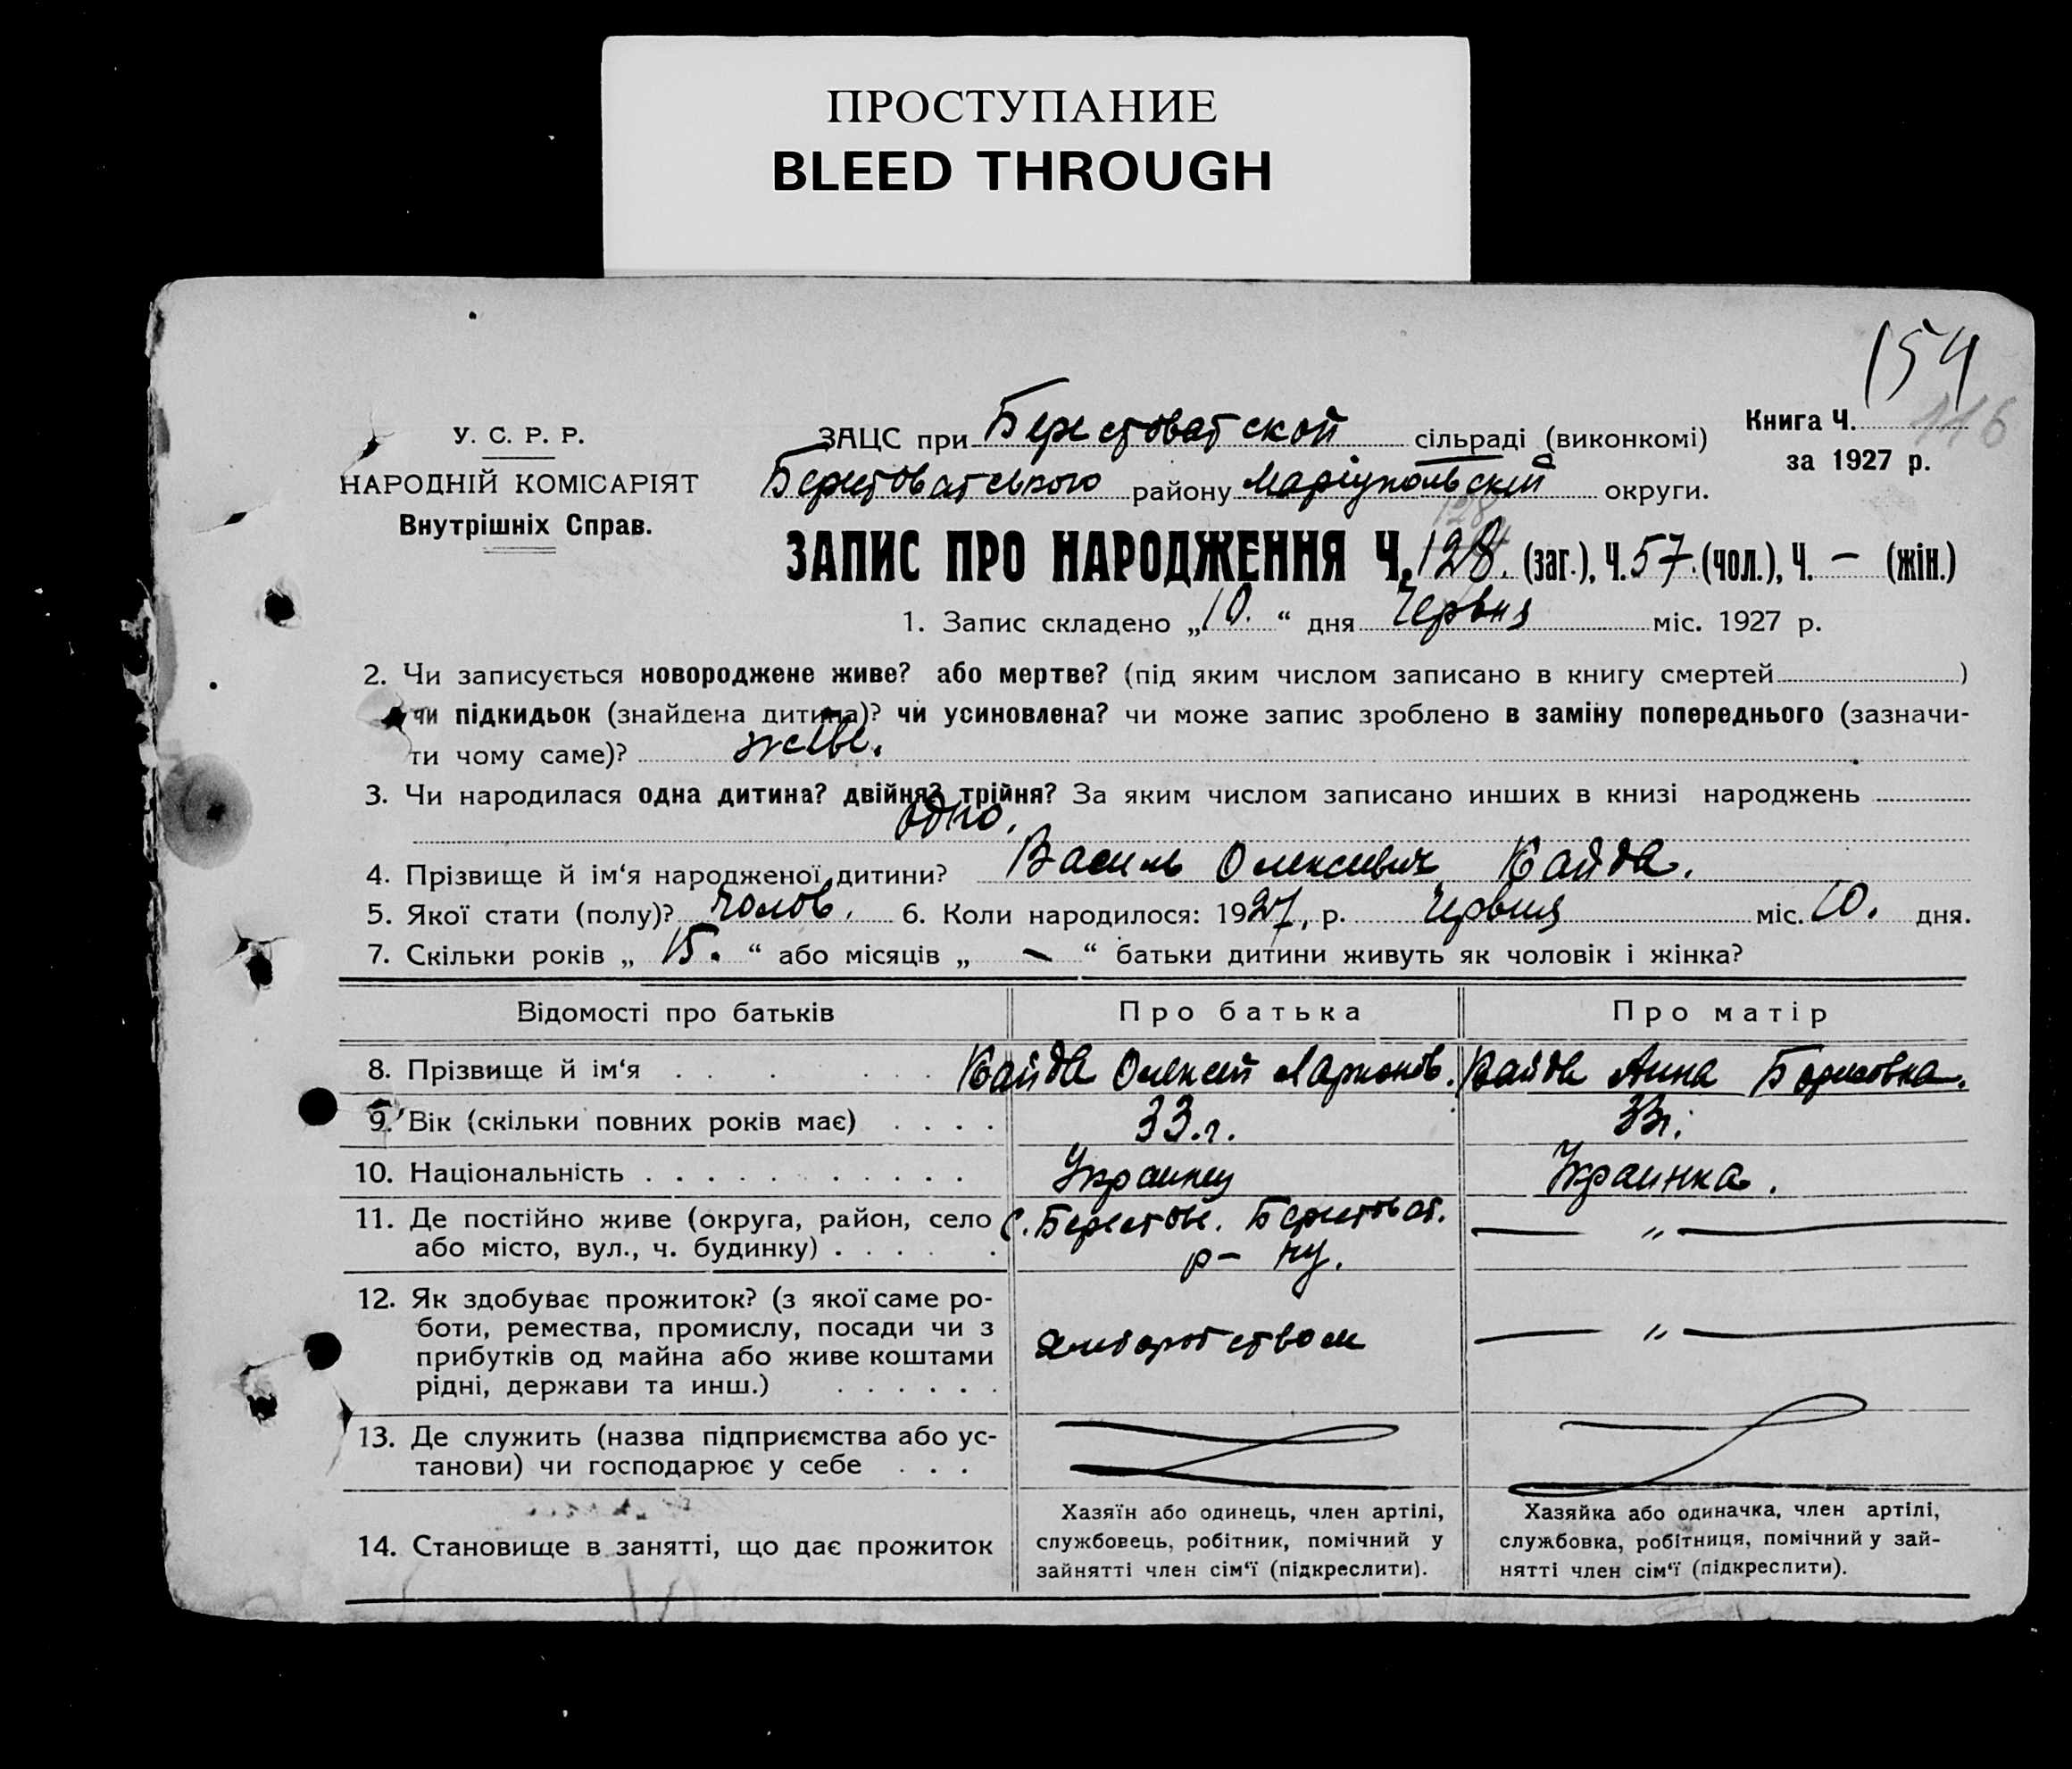 ПРОСТУПАНИЕ
BLEED THROUGH
154
116
У. С. Р. Р.
НАРОДНІЙ КОМІСАРІЯТ
Внутрішніх Справ.
Книга Ч.
за 1927 р.
ЗАЦС при Берестоватской сільраді (виконкомі)
Берестоватського району Маріупольскій округи.
128
ЗАПИС ПРО НАРОДЖЕННЯ Ч. 128. (заг.), Ч. 57. (чол.), Ч. — (жін.)
1. Запис складено „10.“ дня Червня міс. 1927 р.
2. Чи записується новороджене живе? або мертве? (під яким числом записано в книгу смертей )
чи підкидьок (знайдена дитина)? чи усиновлена? чи може запис зроблено в заміну попереднього (зазначи-
ти чому саме)? живе.
3. Чи народилася одна дитина? двійня? трійня? За яким числом записано инших в книзі народжень
одно.
4. Прізвище й ім‘я народженої дитини? Василь Олексиевич Кайда.
5. Якої стати (полу)? чолов. 6. Коли народилося: 1927, р. Червня міс. 10. дня.
7. Скільки років „ 15. “ або місяців „ — “ батьки дитини живуть як чоловік і жінка?
Відомості про батьків Про батька Про матір
8. Прізвище й ім‘я . . . . . . Кайда Олексей Ларионов. Кайда Анна Борисовна.
9. Вік (скільки повних років має) . . . . 33.г. 33г.
10. Національність . . . . . . . . . . . Украинец Украинка.
11. Де постійно живе (округа, район, село с. Берестове. Берестоват. — „ —
або місто, вул., ч. будинку) . . . . . . р-ну.
12. Як здобуває прожиток? (з якої саме ро-
боти, ремества, промислу, посади чи з
прибутків од майна або живе коштами Хлиборобством — „ —
рідні, держави та инш.) . . . . . .
13. Де служить (назва підприємства або ус-
танови) чи господарює у себе . . .
14. Становище в занятті, що дає прожиток
Хазяїн або одинець, член артілі,
службовець, робітник, помічний у
зайнятті член сім‘ї (підкреслити).
Хазяйка або одиначка, член артілі,
службовка, робітниця, помічний у зай-
нятті член сім‘ї (підкреслити).